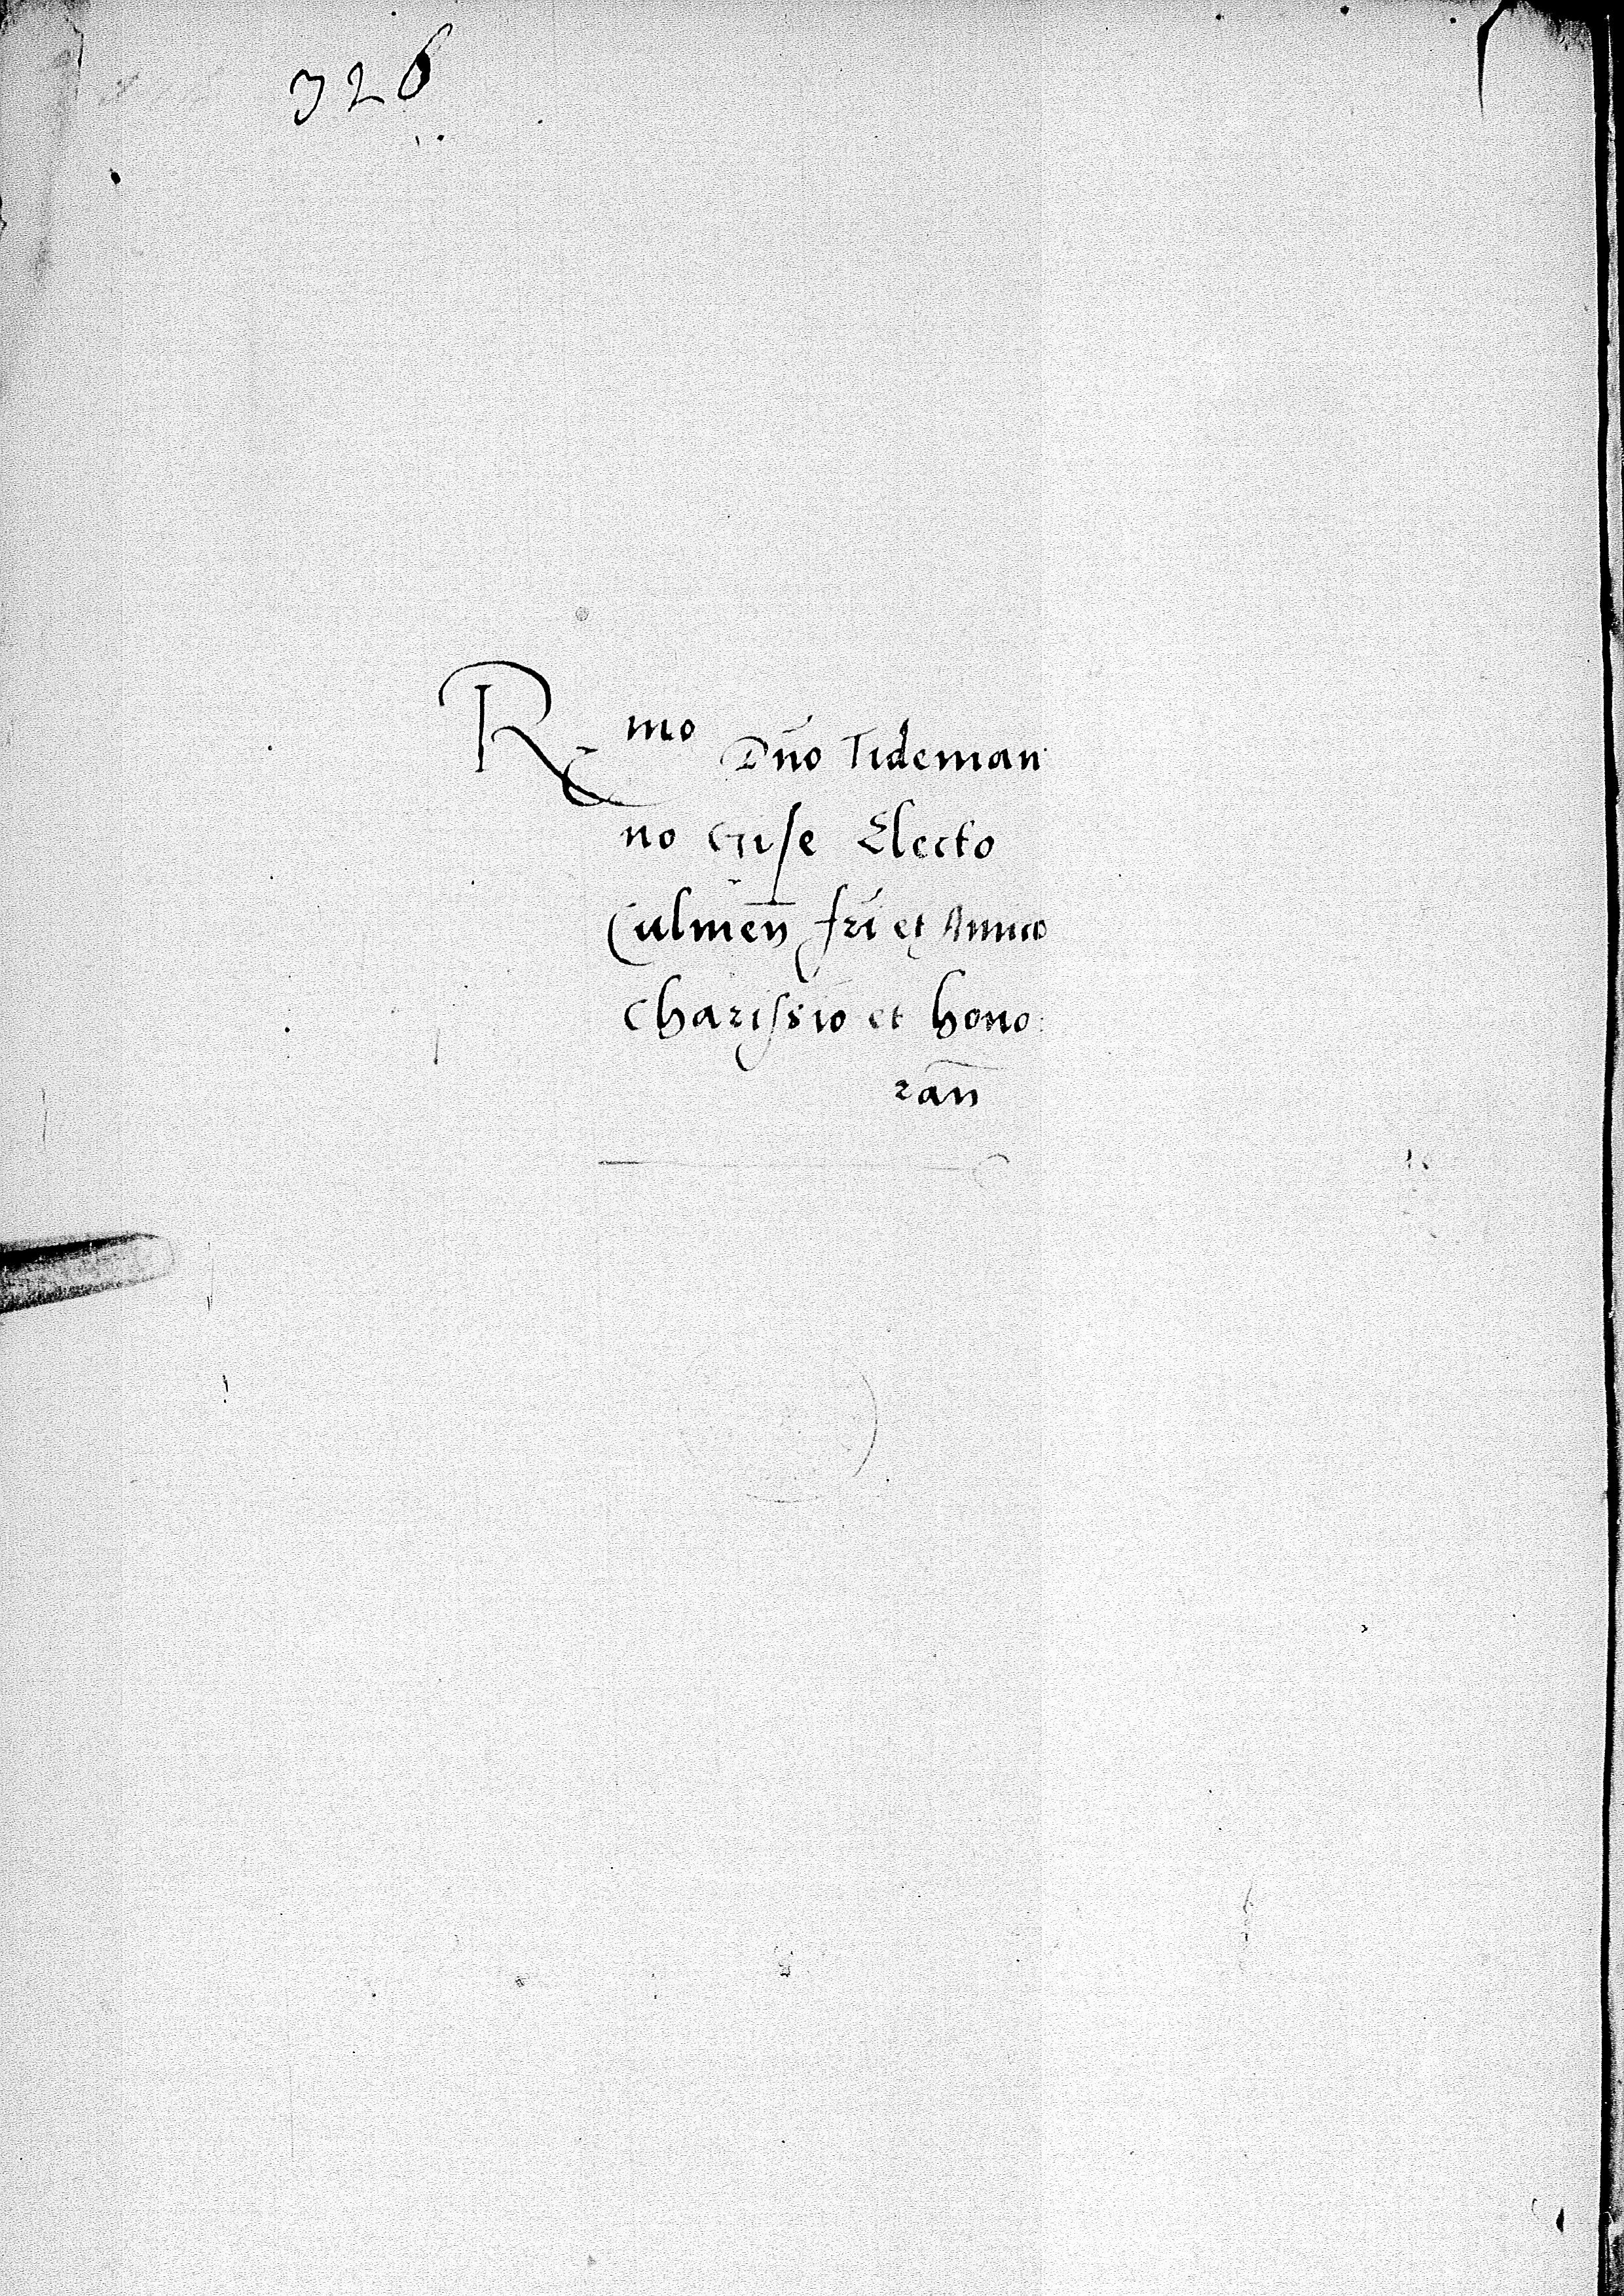 326
R mo Dno Tideman
no Gise Electo
Culmen fri et Amico
charissio et hono:
ran